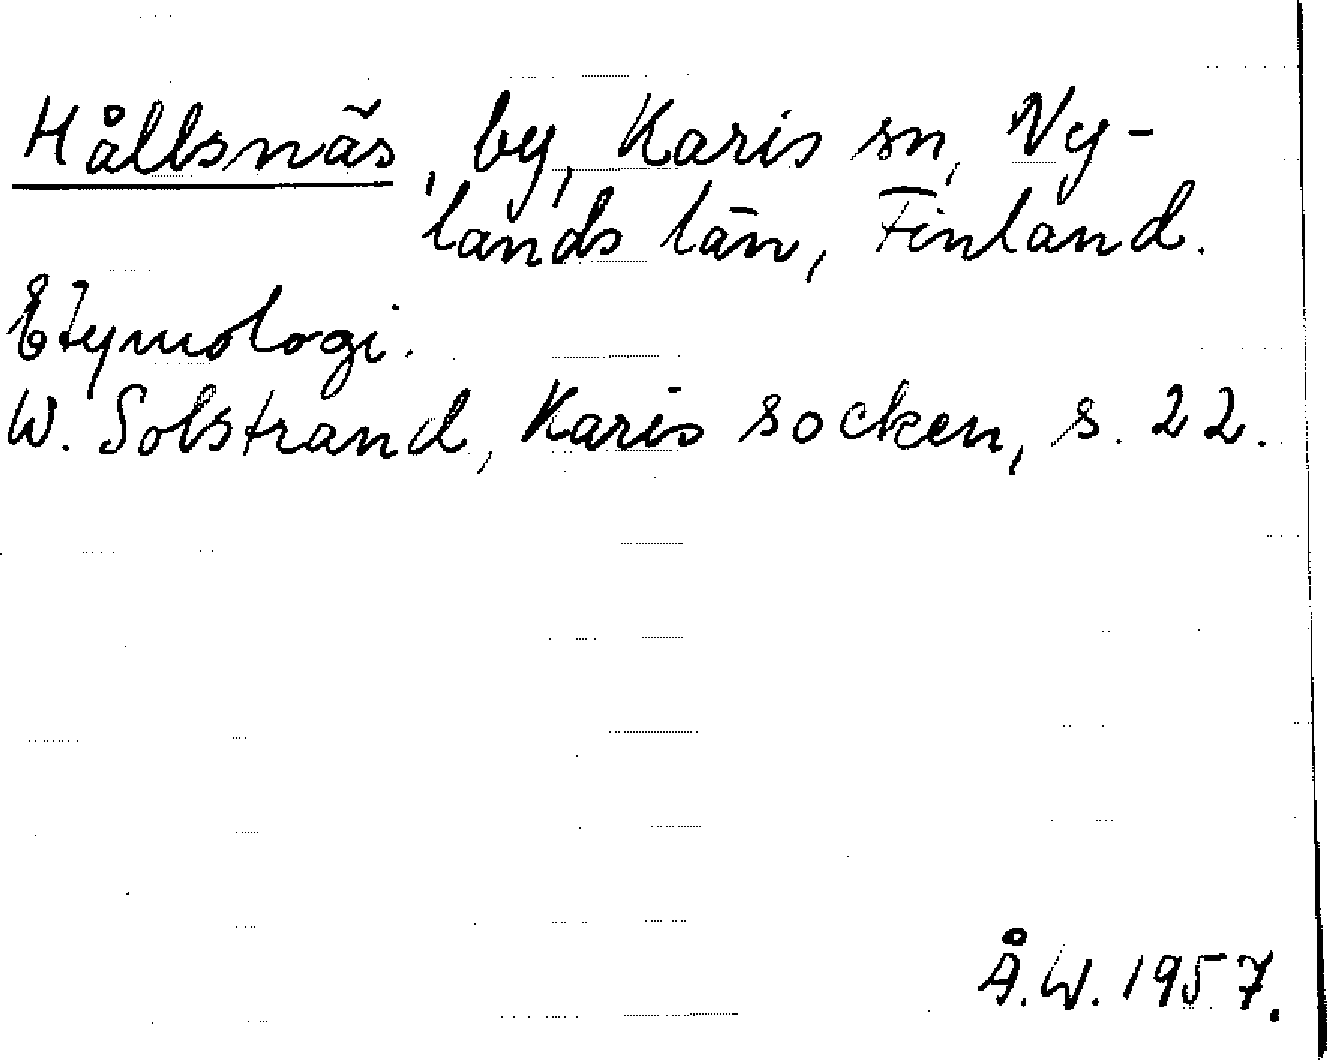 Hållsnäs, by, Karis sn, Ny-
lands län, Finland.
Etymologi.
W. Solstrand, Karis socken, s. 22.
Å.W. 1957.